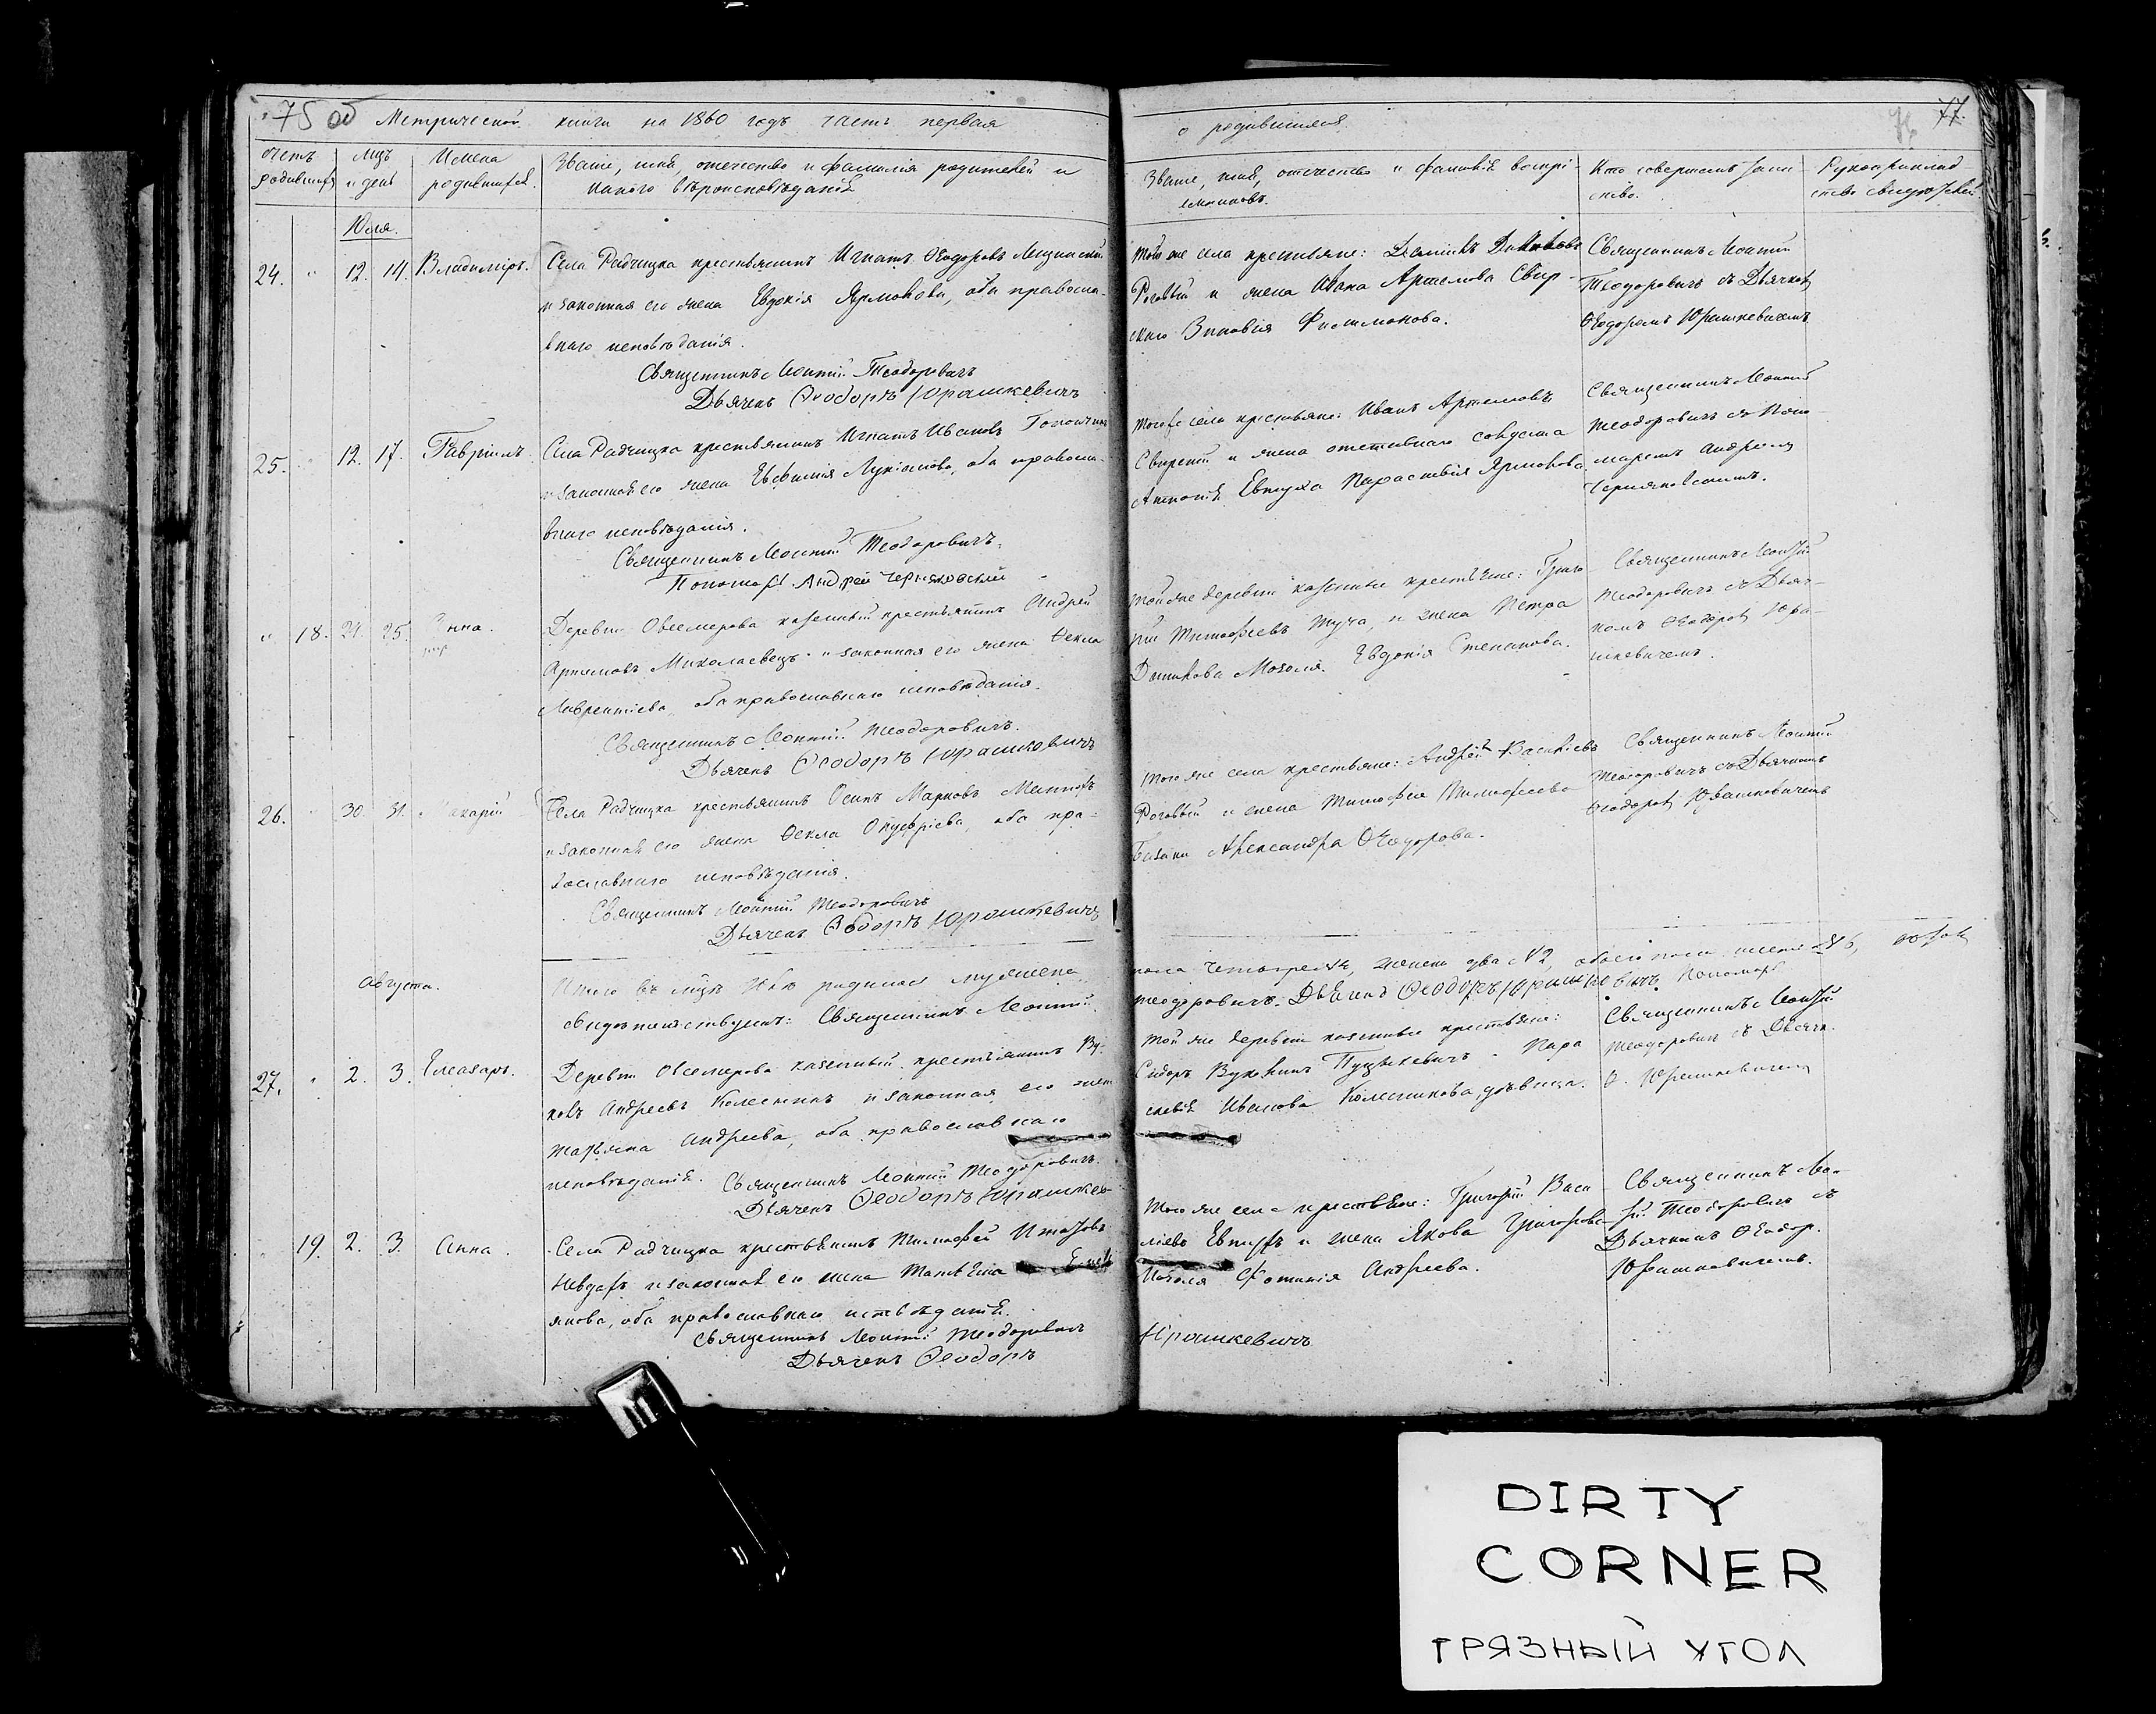 75 об Метрической книги на 1860 годъ часть первая
о родившихся.
77.
счетъ родившихся
мцъ и день
Имена родившихся.
Званіе, имя, отечество и фамилія родителей и
какого вѣроисповѣданія
Званіе, имя, отечество и фамилія воспрі-
емниковъ.
Кто совершалъ таин-
ство.
Рукоприклад
ство свидѣтелей
Июля.
24. " 12. 14. Владиміръ.
Села Радчицка крестьянинъ Игнатъ Ѳеодоровъ
и законная его жена Евдокія Ярмокова, оба правосла-
внаго исповѣданія.
Священникъ Леонтій Теодоровичъ
Дьячекъ Ѳеодоръ Юрашкевичъ
Того же села крестьяне:
и жена Ивана Артемова Свир-
скаго Зиновія Филимонова.
Священникъ Леонтій
Теодоровичъ съ Дьячком
Ѳеодоромъ Юрашкевичемъ
25. " 12. 17. Гавріилъ
Села Радчицка крестьянинъ Игнатъ Ивановъ
и законная его жена Евфимія Лукіанова, оба правосла-
внаго исповѣданія.
Священникъ Леонтій Теодоровичъ.
Пономарь Андрей Черняховскій
Того же села крестьяне: Иванъ Артемовъ
и жена отставнаго солдата
Антонія Евтуха Параскевія Ярмокова.
Священникъ Леонтій
Теодоровичъ съ Поно-
маремъ Андреем
Черняховскимъ.
" 18. 24. 25. Анна.
Деревни Овсемерова казенный крестьянинъ Андрей
Артемовъ Миколаевецъ и законная его жена Ѳекла
Лаврентіева, оба православнаго исповѣданія.
Священникъ Леонтій Теодоровичъ.
Дьячекъ Ѳеодоръ Юрашкевичъ
Той же деревни казенные крестьяне: Григо
рій Тимофеевъ Туча, и жена Петра
Данилова Мохоля Евдокія Степанова.
Священникъ Леонтій
Теодоровичъ съ Дьяч-
комъ Ѳеодоромъ Юра-
шкевичемъ.
26. " 30. 31. Макарій
Села Радчицка крестьянинъ Осипъ Марковъ
и законная его жена Ѳекла Онуфріева, оба пра-
вославнаго исповѣданія.
Священникъ Леонтій Теодоровичъ
Дьячекъ Ѳеодоръ Юрашкевичъ
Того же села крестьяне: Андрей Васильевъ
и жена Тимофея Тимофеева
Александра Ѳеодорова.
Священникъ Леонтій
Теодоровичъ съ Дьячкомъ
Ѳеодоромъ Юрашкевичемъ
Итого въ мцѣ Июлѣ родилось мужеска
пола четыре №4, женска два №2, обоего пола шесть №6,
свидѣтельствуемъ: Священникъ Леонтій
Теодоровичъ. Дьячекъ Ѳеодоръ Юрашкевичъ, Пономарь
Августа.
27. " 2. 3. Елеазаръ.
Деревни Овсемерова казенный крестьянинъ Ву-
колъ Андреевъ Колесникъ и законная его жена
Татьяна Андреева, оба православнаго
исповѣданія. Священникъ Леонтій Теодоровичъ.
Дьячекъ Ѳеодоръ Юрашкев
Той же деревни казенные крестьяне:
Сидоръ Пара
скевія Иванова Колесникова, дѣвица.
Священникъ Леонтій
Теодоровичъ съ Дьячк.
Ѳ. Юрашкевичемъ
" 19. 2. 3. Анна.
Села Радчицка крестьянинъ Тимофей Игнатовъ
и законная его жена Татьяна
янова, оба православнаго исповѣданія.
Священникъ Леонтій Теодоровичъ
Дьячекъ Ѳеодоръ
Юрашкевичъ
Того же села крестьяне: Григорій Васи
льевъ Евтухъ и жена Якова Григорова
Мохоля Фотинія Андреева.
Священникъ Лео-
тій Теодоровичъ съ
Дьячкомъ Ѳеодор.
Юрашкевичемъ.
DIRTY
CORNER
ГРЯЗНЫЙ УГОЛ